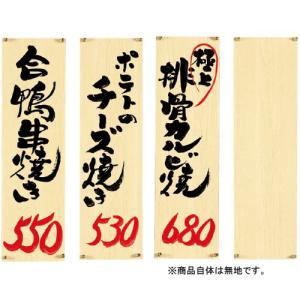 合鴨串焼き
550
ポテトの
チーズ焼き
530
極上
排骨カルビ焼
680
※商品自体は無地です。